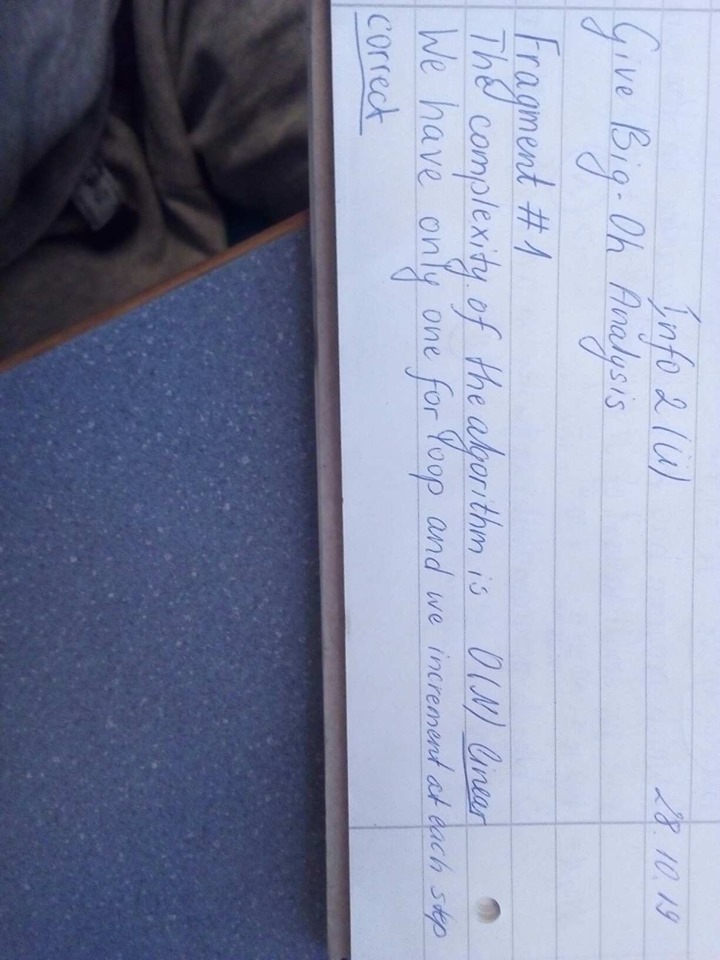 Info 2 (Ü) 28.10.19
Give Big-Oh Analysis
Fragment #1
The complexity of the algorithm is O(N) linear
We have only one for loop and we increment at each step
correct